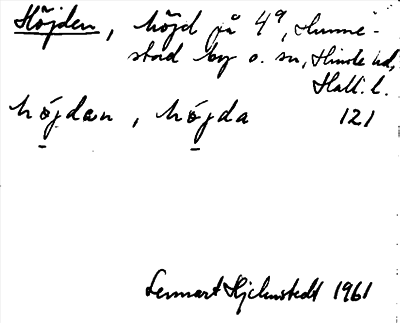 Höjden, höjd på 4⁹, Hunne-
stad by o. sn, Himle hd,
Hall. l.
höjdan, höjda 121
Lennart Hjelmstedt 1961